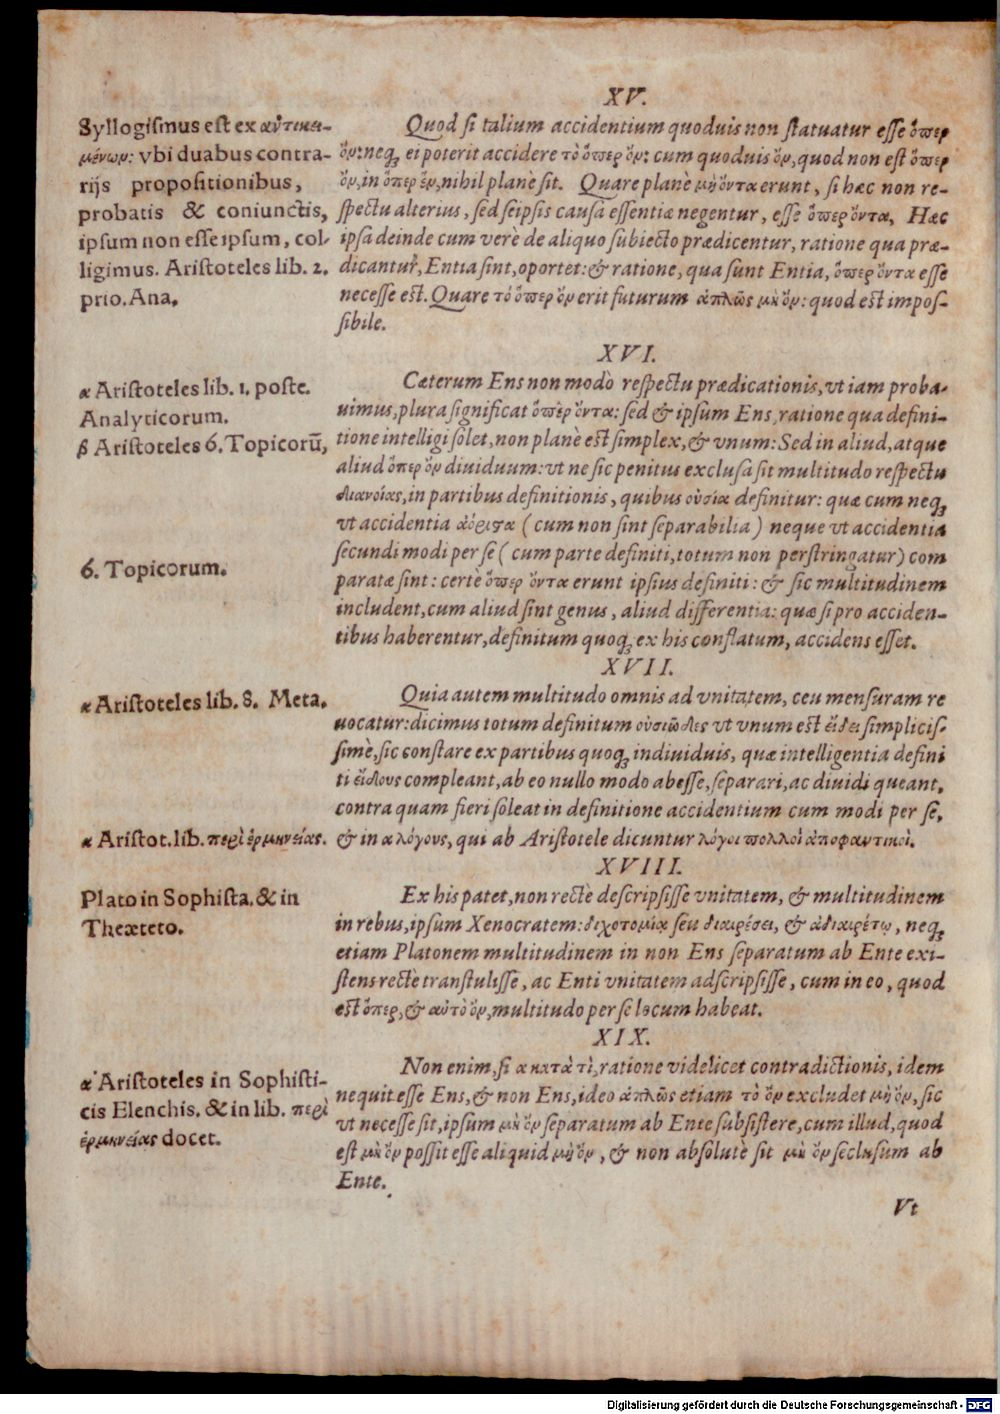 XV.
Syllogismus est ex αὐτικει-
μένων: vbi duabus contra-
rijs propositionibus,
probatis & coniunctis,
ipsum non esse ipsum, col-
ligimus. Aristoteles lib. 2.
prio. Ana.
Quod si talium accidentium quoduis non statuatur esse ὅπερ
ὄν: neq; ei poterit accidere τὸ ὅπερ ὄν: cum quoduis ὄν, quod non est ὅπερ
ὄν, in ὅπερ ἓν, nihil planè sit. Quare planè μὴ ὄντα erunt, si hæc non re-
spectu alterius, sed seipsis causa essentiæ negentur, esse ὅπερ ὄντα, Hæc
ipsa deinde cum verè de aliquo subiecto prædicentur, ratione qua præ-
dicantur, Entia sint, oportet: & ratione, qua sunt Entia, ὅπερ ὄντα esse
necesse est. Quare τὸ ὅπερ ὄν erit futurum ἁπλῶς μὴ ὄν: quod est impos-
sibile.
XVI.
α Aristoteles lib. 1. poste.
Analyticorum.
β Aristoteles 6. Topicorū,
6. Topicorum.
Cæterum Ens non modò respectu prædicationis, vt iam proba-
uimus, plura significat ὅπερ ὄντα: sed & ipsum Ens, ratione qua defini-
tione intelligi solet, non planè est simplex, & vnum: Sed in aliud, atque
aliud ὅπερ ὄν diuiduum: vt ne sic penitus exclusa sit multitudo respectu
διανοίας, in partibus definitionis, quibus οὐσία definitur: quæ cum neq;
vt accidentia ἀόριστα ( cum non sint separabilia ) neque vt accidentia
secundi modi per se ( cum parte definiti, totum non perstringatur ) com
paratæ sint: certè ὅπερ ὄντα erunt ipsius definiti: & sic multitudinem
includent, cum aliud sint genus, aliud differentia: quæ si pro acciden-
tibus haberentur, definitum quoq; ex his conflatum, accidens esset.
XVII.
α Aristoteles lib. 8. Meta.
α Aristot. lib. περὶ ἑρμηνείας.
Quia autem multitudo omnis ad vnitatem, ceu mensuram re
uocatur: dicimus totum definitum οὐσιῶδες vt vnum est εἴδει simplicis-
simè, sic constare ex partibus quoq; indiuiduis, quæ intelligentia defini
ti εἴδους compleant, ab eo nullo modo abesse, separari, ac diuidi queant,
contra quam fieri soleat in definitione accidentium cum modi per se,
& in α λόγους, qui ab Aristotele dicuntur λόγοι πολλοὶ ἀποφαντικοὶ.
XVIII.
Plato in Sophista, & in
Theæteto.
Ex his patet, non rectè descripsisse vnitatem, & multitudinem
in rebus, ipsum Xenocratem: διχοτομίᾳ seu διαιρέσει, & ἀδιαιρέτῳ, neq;
etiam Platonem multitudinem in non Ens separatum ab Ente exi-
stens rectè transtulisse, ac Enti vnitatem adscripsisse, cum in eo, quod
est ὅπερ, & αὐτὸ ὄν, multitudo per se locum habeat.
XIX.
α Aristoteles in Sophisti-
cis Elenchis. & in lib. περὶ
ἑρμηνείας docet.
Non enim, si α κατὰ τὶ, ratione videlicet contradictionis, idem
nequit esse Ens, & non Ens, ideo ἁπλῶς etiam τὸ ὄν excludet μὴ ὄν, sic
vt necesse sit, ipsum μὴ ὄν separatum ab Ente subsistere, cum illud, quod
est μὴ ὄν possit esse aliquid μὴ ὄν, & non absolutè sit μὴ ὄν seclusum ab
Ente.
Vt
Digitalisierung gefördert durch die Deutsche Forschungsgemeinschaft - DFG